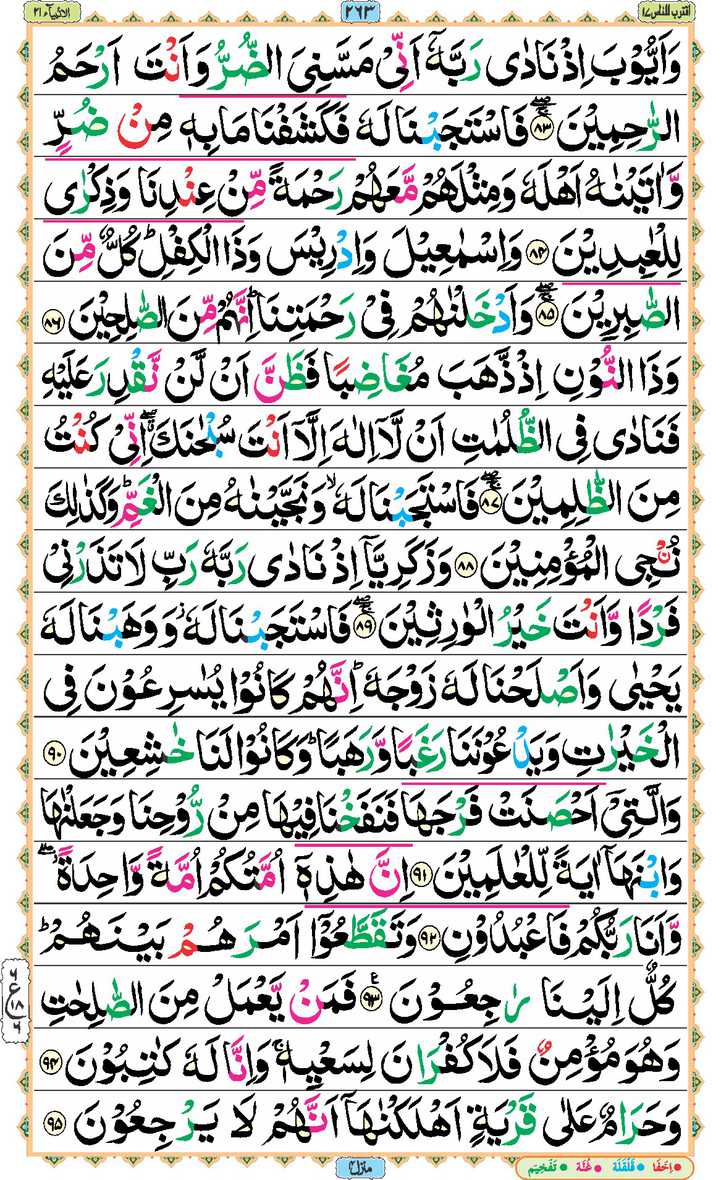 اقترب للناس ١٧
٢٦٣
الانبيآء ٢١
وَاَيُّوْبَ اِذْ نَادٰى رَبَّهٗۤ اَنِّىْ مَسَّنِىَ الضُّرُّ وَاَنْتَ اَرْحَمُ
الرّٰحِمِيْنَ ۚۖ‏﴿۸۳﴾ فَاسْتَجَبْنَا لَهٗ فَكَشَفْنَا مَا بِهٖ مِنْ ضُرٍّ
وَّاٰتَيْنٰهُ اَهْلَهٗ وَمِثْلَهُمْ مَّعَهُمْ رَحْمَةً مِّنْ عِنْدِنَا وَذِكْرٰى
لِلْعٰبِدِيْنَ ﴿۸۴﴾ وَاِسْمٰعِيْلَ وَاِدْرِيْسَ وَذَا الْكِفْلِ‌ؕ كُلٌّ مِّنَ
الصّٰبِرِيْنَ ۚۖ‏﴿۸۵﴾ وَاَدْخَلْنٰهُمْ فِىْ رَحْمَتِنَا ؕ اِنَّهُمْ مِّنَ الصّٰلِحِيْنَ ﴿۸۶﴾
وَذَا النُّوْنِ اِذْ ذَّهَبَ مُغَاضِبًا فَظَنَّ اَنْ لَّنْ نَّقْدِرَ عَلَيْهِ
فَنَادٰى فِى الظُّلُمٰتِ اَنْ لَّاۤ اِلٰهَ اِلَّاۤ اَنْتَ سُبْحٰنَكَ ۖ اِنِّىْ كُنْتُ
مِنَ الظّٰلِمِيْنَ ۚۖ‏﴿۸۷﴾ فَاسْتَجَبْنَا لَهٗۙ وَنَجَّيْنٰهُ مِنَ الْغَمِّ‌ؕ وَكَذٰلِكَ
نُـنْجِى الْمُؤْمِنِيْنَ ﴿۸۸﴾ وَزَكَرِيَّاۤ اِذْ نَادٰى رَبَّهٗ رَبِّ لَا تَذَرْنِىْ
فَرْدًا وَّاَنْتَ خَيْرُ الْوٰرِثِيْنَ ۚۖ‏﴿۸۹﴾ فَاسْتَجَبْنَا لَهٗ وَوَهَبْنَا لَهٗ
يَحْيٰى وَاَصْلَحْنَا لَهٗ زَوْجَهٗ ؕ اِنَّهُمْ كَانُوْا يُسٰرِعُوْنَ فِى
الْخَيْرٰتِ وَيَدْعُوْنَنَا رَغَبًا وَّرَهَبًا ؕ وَكَانُوْا لَنَا خٰشِعِيْنَ ﴿۹۰﴾
وَالَّتِىْۤ اَحْصَنَتْ فَرْجَهَا فَنَفَخْنَا فِيْهَا مِنْ رُّوْحِنَا وَ جَعَلْنٰهَا
وَابْنَهَاۤ اٰيَةً لِّلْعٰلَمِيْنَ ﴿۹۱﴾ اِنَّ هٰذِهٖۤ اُمَّتُكُمْ اُمَّةً وَّاحِدَةً ۖ
وَّاَنَا رَبُّكُمْ فَاعْبُدُوْنِ ﴿۹۲﴾ وَتَقَطَّعُوْۤا اَمْرَهُمْ بَيْنَهُمْ‌ؕ
كُلٌّ اِلَيْنَا رٰجِعُوْنَ ﴿۹۳﴾ فَمَنْ يَّعْمَلْ مِنَ الصّٰلِحٰتِ
وَهُوَ مُؤْمِنٌ فَلَا كُفْرَانَ لِسَعْيِهٖ‌ۚ وَاِنَّا لَهٗ كٰتِبُوْنَ ﴿۹۴﴾
وَحَرَامٌ عَلٰى قَرْيَةٍ اَهْلَكْنٰهَاۤ اَنَّهُمْ لَا يَرْجِعُوْنَ ﴿۹۵﴾
٦
ع
١٨
٦
منزل ٤
اِخفَا قَلقَلَة غُنَّة تَفخِيم